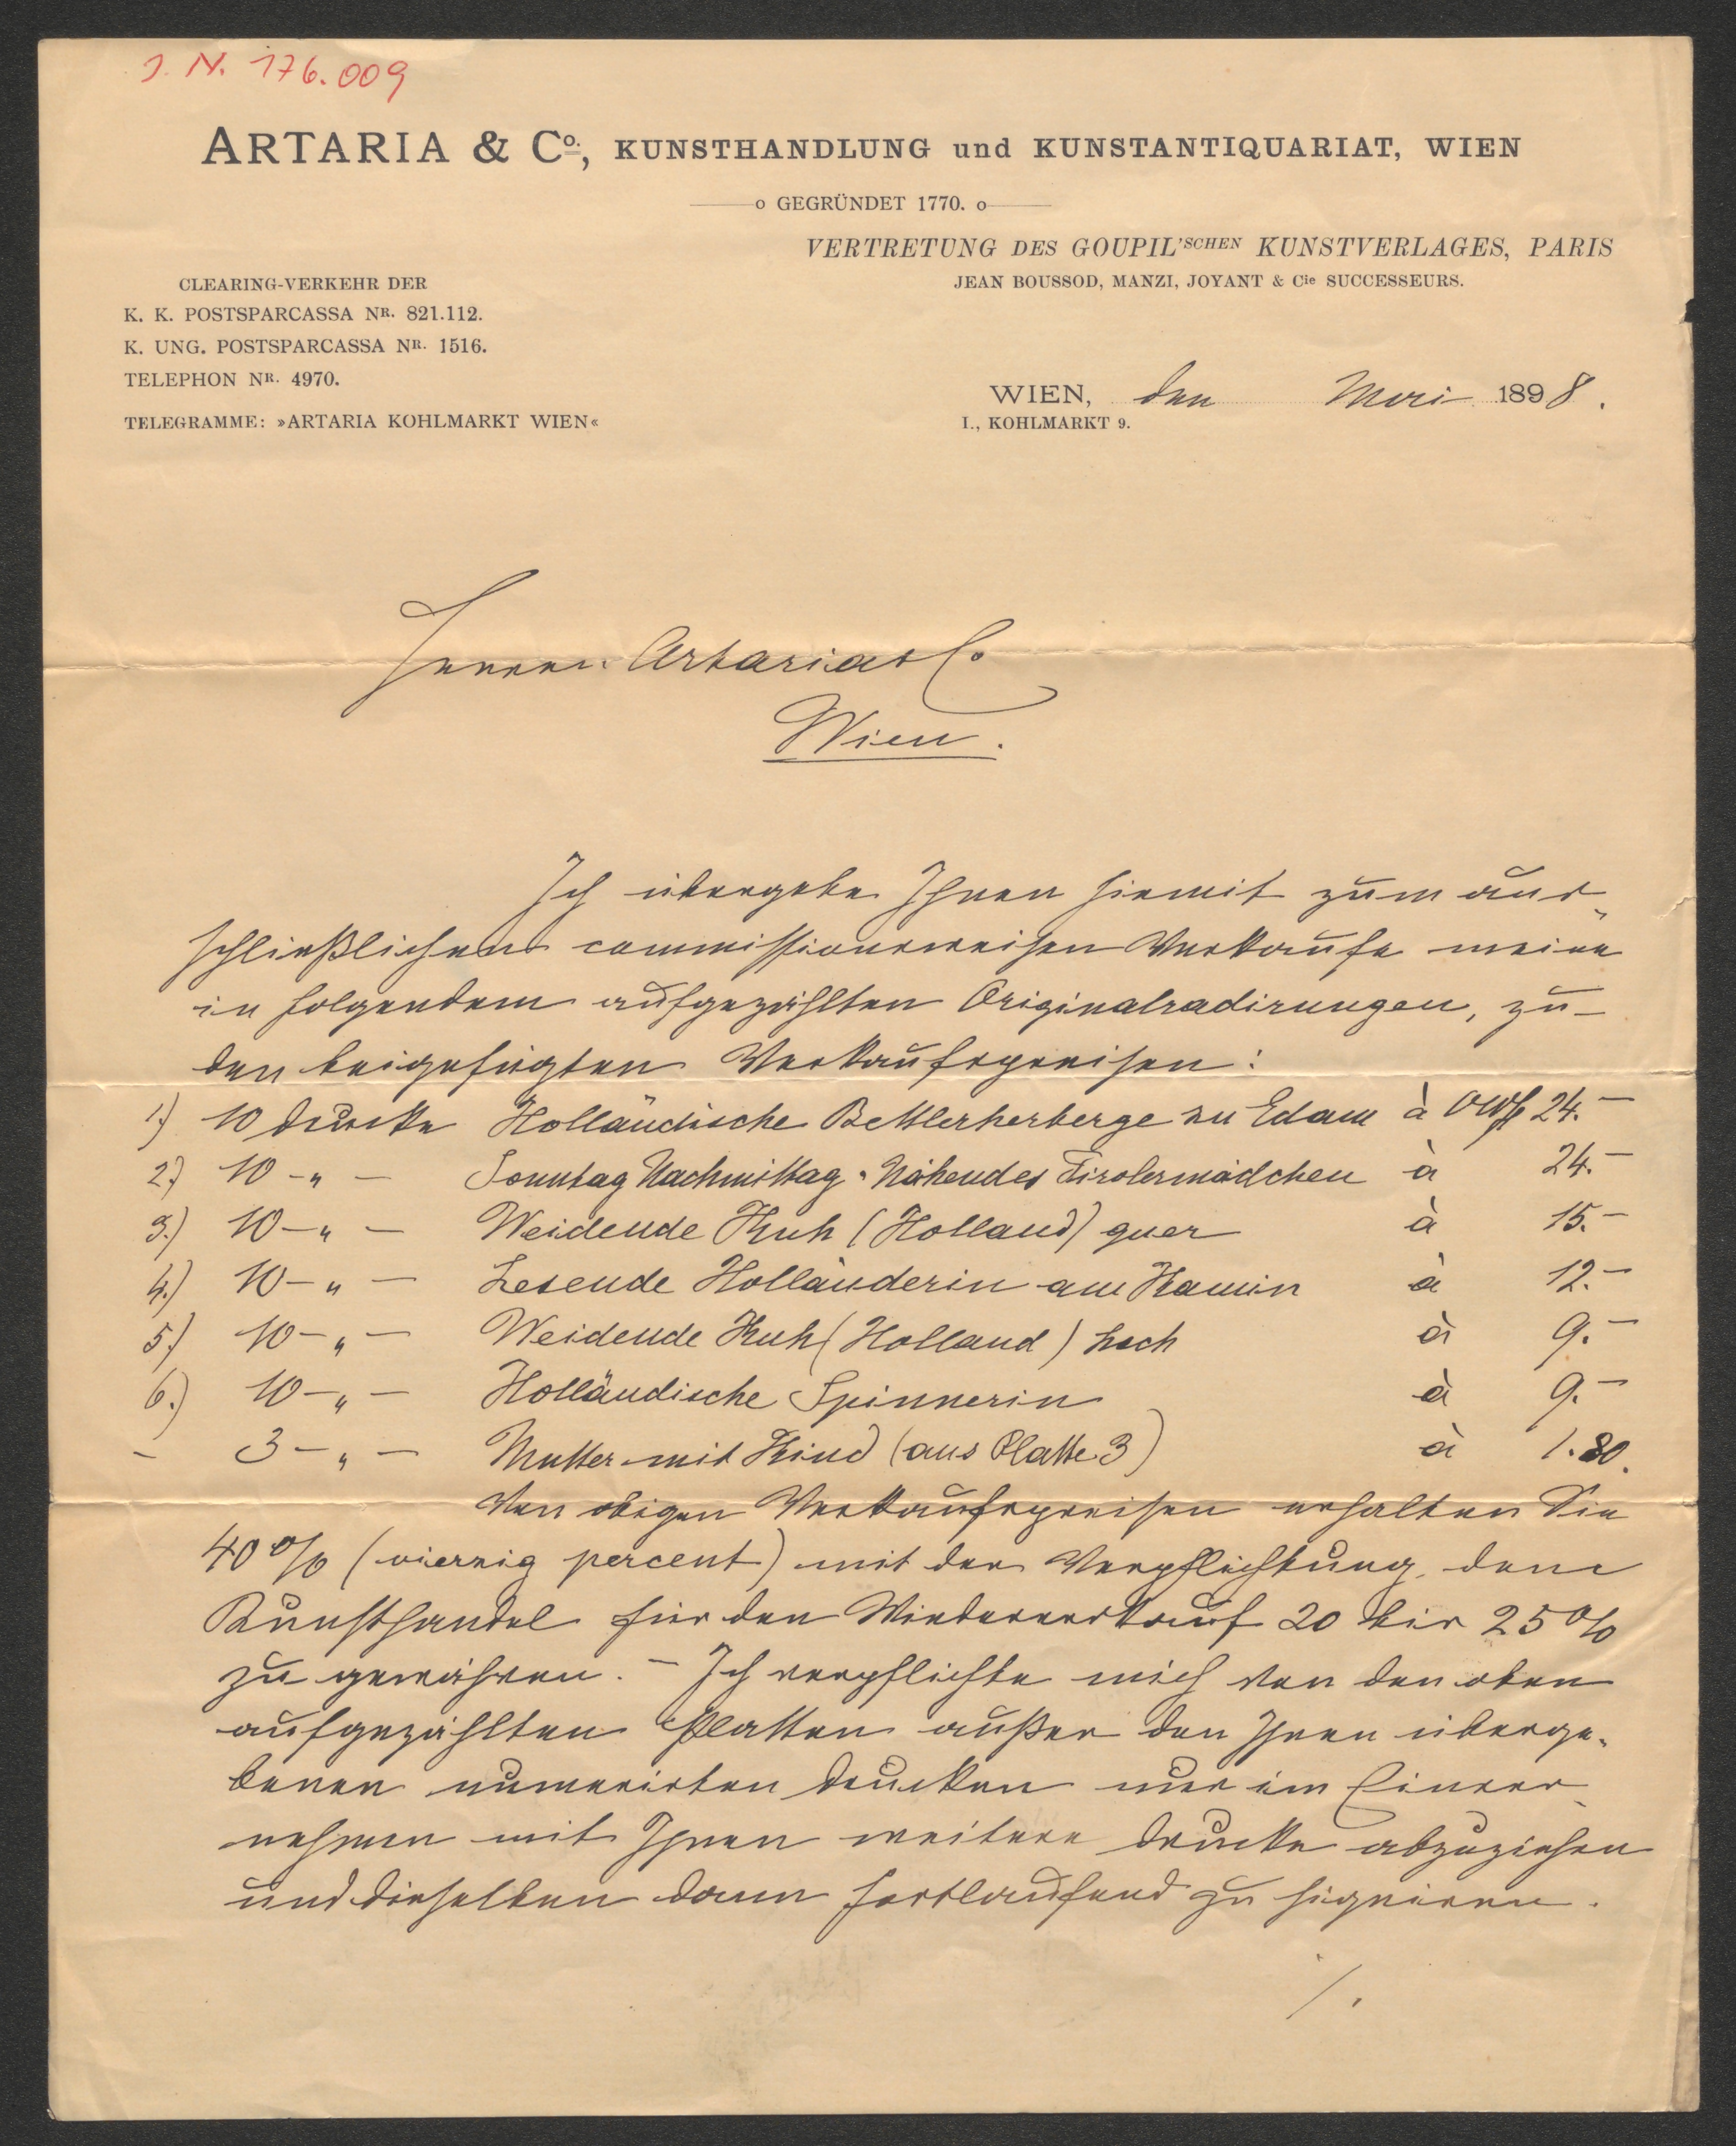 J. N. 176.009
ARTARIA & Co., KUNSTHANDLUNG und KUNSTANTIQUARIAT, WIEN
o GEGRÜNDET 1770. o
VERTRETUNG DES GOUPIL'SCHEN KUNSTVERLAGES, PARIS
JEAN BOUSSOD, MANZI, JOYANT & Cie SUCCESSEURS.
CLEARING-VERKEHR DER
K. K. POSTSPARCASSA NR. 821.112.
K. UNG. POSTSPARCASSA NR. 1516.
TELEPHON NR. 4970.
TELEGRAMME: »ARTARIA KOHLMARKT WIEN«
WIEN, den Mai 1898.
I., KOHLMARKT 9.
Herren Artaria & Co
Wien.
Ich übergebe Ihnen hiemit zum aus-
schließlichen commissionsweisen Verkaufe meine
in folgendem aufgezählten Originalradirungen, zu
den beigefügten Verkaufspreisen:
1.) 10 Drucke Holländische Bettlerherberge zu Edam à ÖWfl 24.–
2.) 10 –„– Sonntag Nachmittag. Nähendes Tirolermädchen à 24.–
3.) 10 –„– Weidende Kuh (Holland) quer à 15.–
4.) 10 –„– Lesende Holländerin am Kamin à 12.–
5.) 10 –„– Weidende Kuh (Holland) hoch à 9.–
6.) 10 –„– Holländische Spinnerin à 9.–
– 3 –„– Mutter mit Kind (aus Platte 3) à 1.80.
Von obigen Verkaufspreisen erhalten Sie
40% (vierzig percent) mit der Verpflichtung, dem
Kunsthandel für den Wiederverkauf 20 bis 25%
zu gewähren. – Ich verpflichte mich von den oben
aufgezählten Platten außer den Ihnen überge-
benen numerirten Drucken nur im Einver-
nehmen mit Ihnen weitere Drucke abzuziehen
und dieselben dann fortlaufend zu signiren.
/.